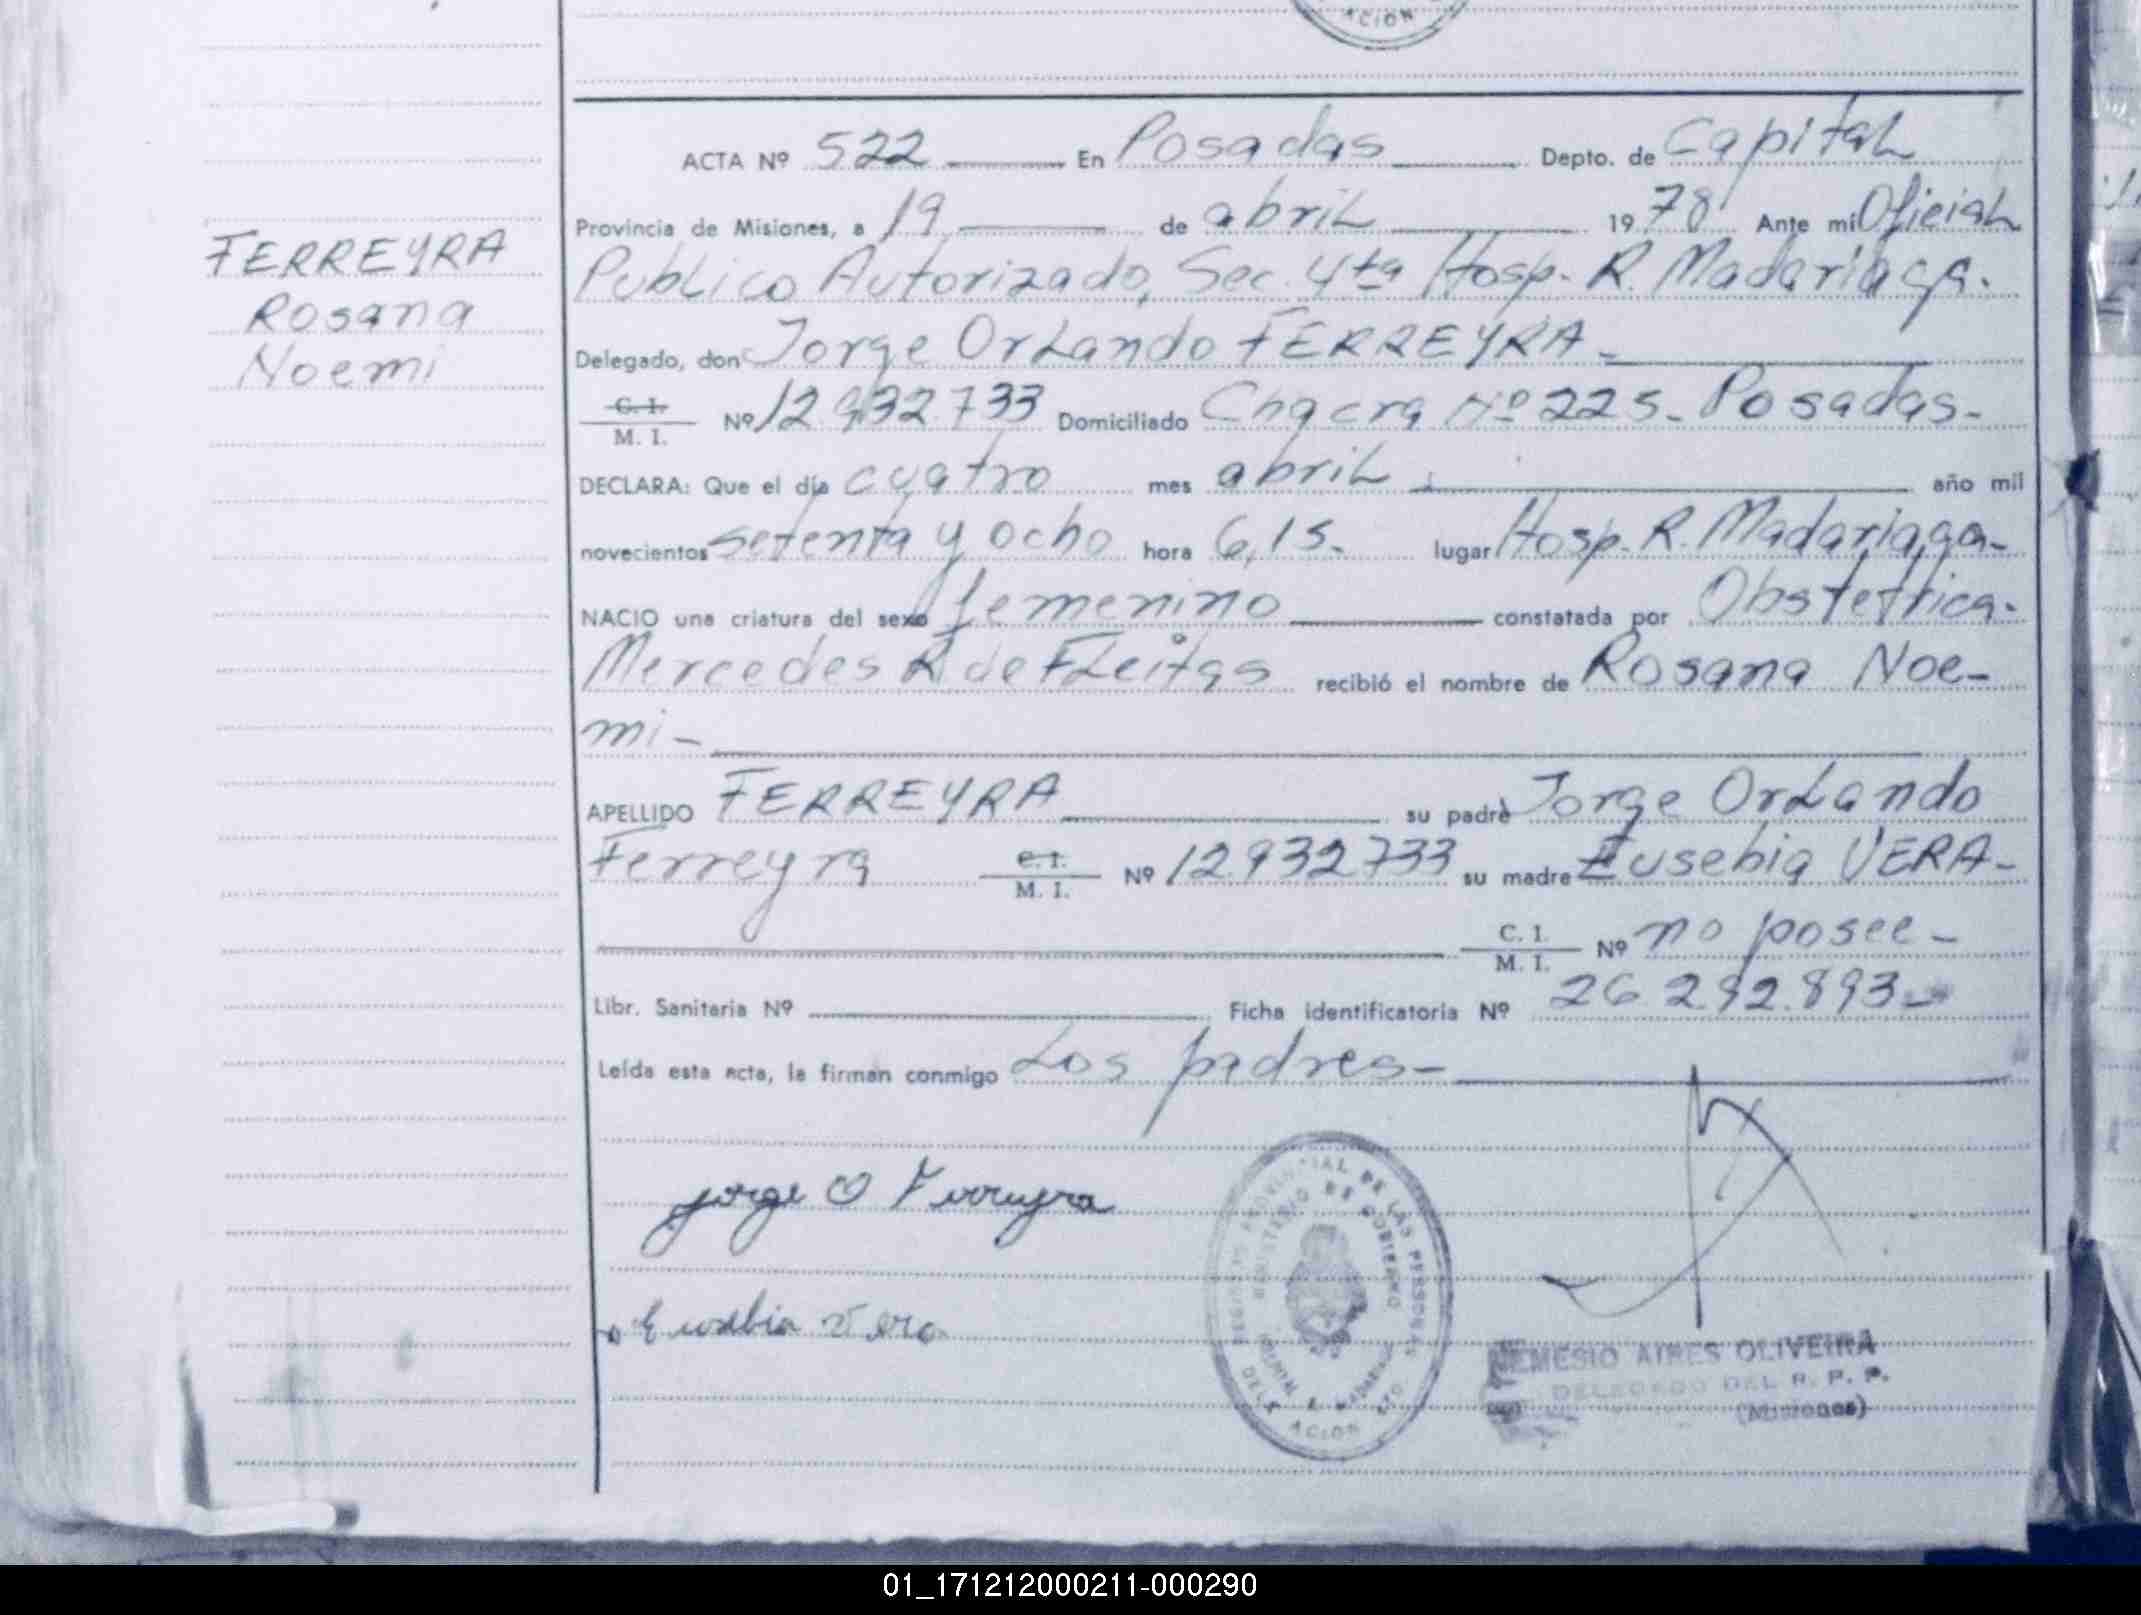 ACION
ACTA Nº 522 En Posadas Depto. de Capital
Provincia de Misiones, a 19 de abril 1978 Ante mi Oficial
Publico Autorizado, Sec. 4ta Hosp. R. Madariaga.
Delegado, don Jorge Orlando FERREYRA -
C. I. / M. I. Nº 12.932.733 Domiciliado Chacra Nº 225 - Posadas -
DECLARA: Que el día cuatro mes abril año mil
novecientos setenta y ocho hora 6,15. lugar Hosp. R. Madariaga -
NACIO una criatura del sexo femenino constatada por Obstetrica.
Mercedes R de Fleitas recibió el nombre de Rosana Noe-
mi -
APELLIDO FERREYRA su padre Jorge Orlando
Ferreyra C. I. / M. I. Nº 12.932.733 su madre Eusebia VERA -
C. I. / M. I. Nº no posee -
Libr. Sanitaria Nº Ficha identificatoria Nº 26.292.893 -
Leída esta acta, la firman conmigo Los padres -
FERREYRA
Rosana
Noemi
Jorge O Ferreyra
Eusebia Vera
REGISTRO PROVINCIAL DE LAS PERSONAS
MINISTERIO DE GOBIERNO
DELEGACION
NEMESIO AIRES OLIVEIRA
DELEGADO DEL R. P. P.
(Misiones)
01_171212000211-000290